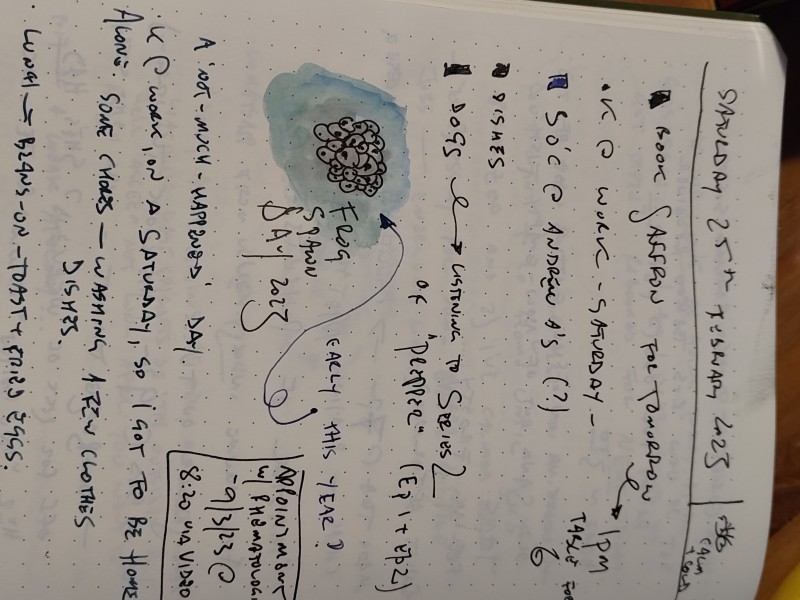 SATURDAY 25TH FEBRUARY 2023
CALM
BOOK SAFFRON FOR TOMORROW
1PM
TABLE FOR
6
• K @ WORK - SATURDAY -
SÓC @ ANDREW A'S (?)
DISHES
DOGS → LISTENING TO SERIES 2
OF "PREPPER" (Ep 1 + Ep 2)
FROG
SPAWN
DAY 2023
EARLY THIS YEAR?
APPOINTMENT
W/
- 9/3/23 @
8:20 VIA VIDEO
A 'NOT-MUCH-HAPPENED' DAY.
• K @ WORK, ON A SATURDAY, SO I GOT TO BE HOME
ALONE. SOME CHORES — WASHING A FEW CLOTHES
DISHES.
• LUNCH → BEANS-ON-TOAST + FRIED EGGS.